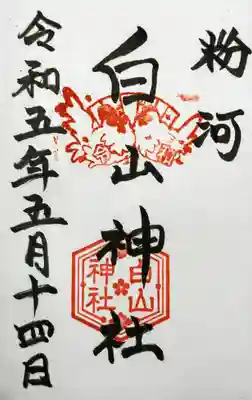 粉河
白山神社
白山
神社
令和五年五月十四日